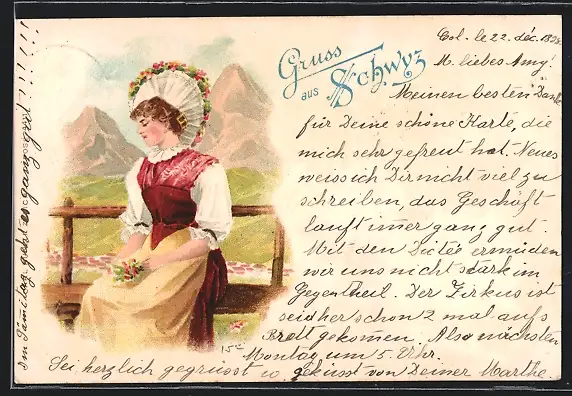 Gruss
aus
Schwyz
Col. le 22. déc. 1898.
M. liebes Amy!
Meinen besten Dank
für Deine schöne Karte, die
mich sehr gefreut hat. Neues
weiss ich Dir nicht viel zu
schreiben, das Geschäft
lauft im̄er ganz gut.
Mit den Dictée ermüden
wir uns nicht stark im
Gegentheil. Der Zirkus ist
seidher schon 2 mal aufs
Brett gekommen. Also nächsten
Montag um 5. Uhr.
Sei herzlich gegrüsst u geküsst von Deiner Marthe
geht es ganz